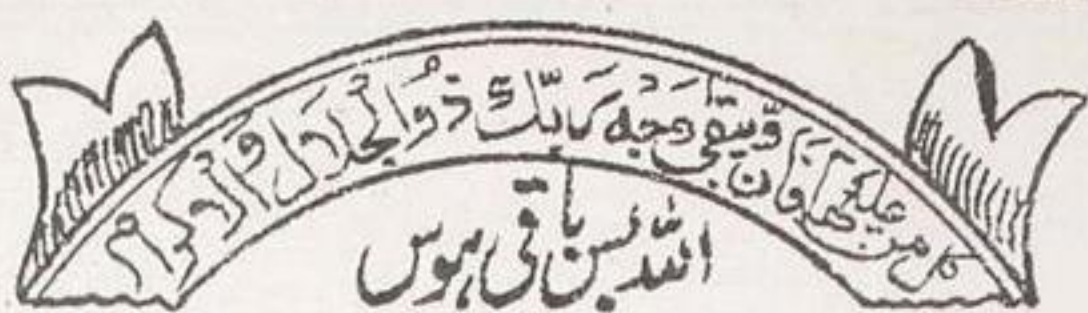 كل من عليها فان و يبقى وجه ربك ذو الجلال و الاكرام
اللہ بس باقی ہوس